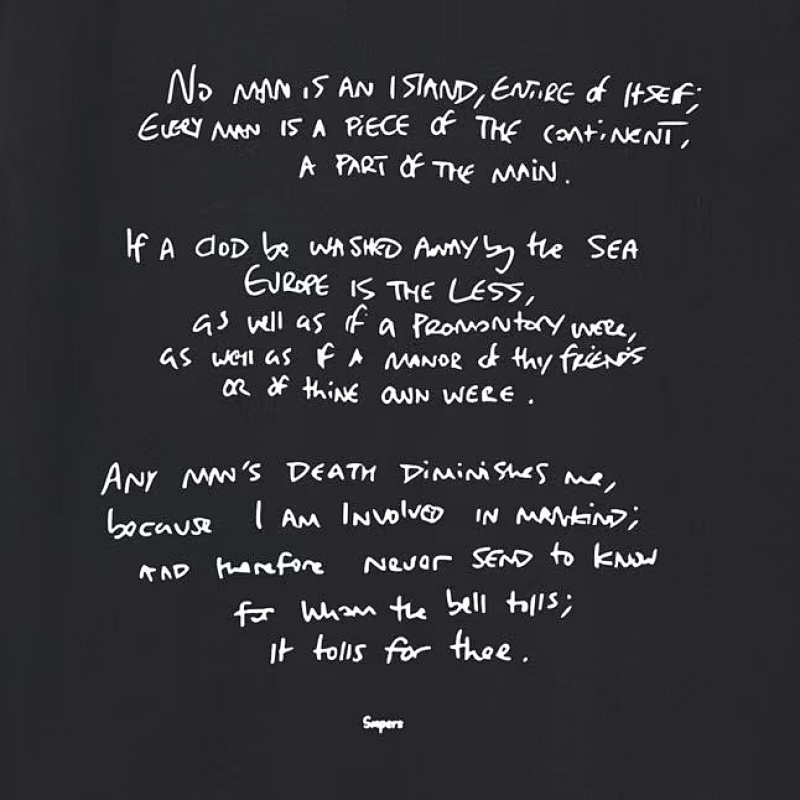 No MAN IS AN ISTAND, ENTIRE of ItSEF;
EVERY MAN IS A PIECE OF THE CONTINENT,
A PART OF THE MAIN.
If A CLOD be WASHED AWAY by the SEA
EUROPE IS THE LESS,
as well as if a PROMONTORY WERE,
as well as if A MANOR of thy FRIENDS
OR OF thINE OWN WERE.
ANY MAN'S DEATH DIMINISHES me,
because I AM INVOLVED IN MANKIND;
AND therefore never SEND to KNOW
for whom the bell tolls;
It tolls for thee.